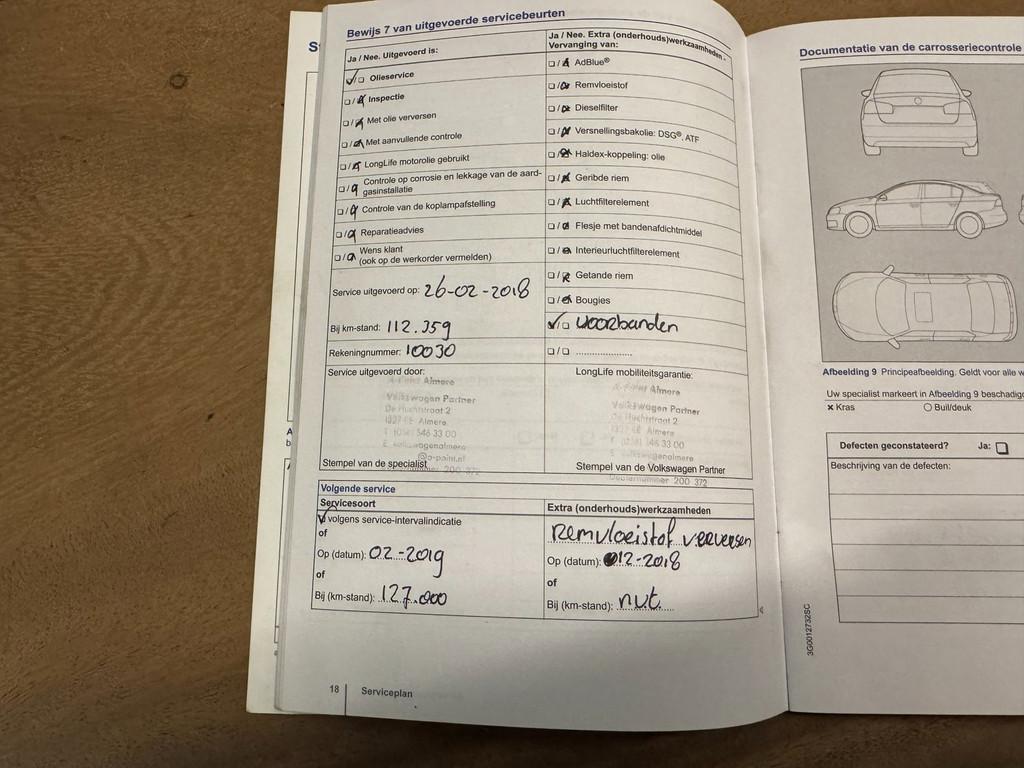 Bewijs 7 van uitgevoerde servicebeurten
Ja / Nee. Uitgevoerd is:
☑/□ Olieservice
□/☑ Inspectie
□/☑ Met olie verversen
□/☑ Met aanvullende controle
□/☑ LongLife motorolie gebruikt
□/☑ Controle op corrosie en lekkage van de aard-
gasinstallatie
□/☑ Controle van de koplampafstelling
□/☑ Reparatieadvies
□/☑ Wens klant
(ook op de werkorder vermelden)
Service uitgevoerd op: 26-02-2018
Bij km-stand: 112.359
Rekeningnummer: 10030
Service uitgevoerd door:
Almere
Volkswagen Partner
De Huchtstraat 2
Almere
546 33 00
@a-point.nl
200 372
Stempel van de specialist
Ja / Nee. Extra (onderhouds)werkzaamheden -
Vervanging van:
□/☑ AdBlue®
□/☑ Remvloeistof
□/☑ Dieselfilter
□/☑ Versnellingsbakolie: DSG®, ATF
□/☑ Haldex-koppeling: olie
□/☑ Geribde riem
□/☑ Luchtfilterelement
□/☑ Flesje met bandenafdichtmiddel
□/☑ Interieurluchtfilterelement
□/☑ Getande riem
□/☑ Bougies
☑/□ voorbanden
□/□ ....................
LongLife mobiliteitsgarantie:
Almere
Volkswagen Partner
De Huchtstraat 2
Almere
546 33 00
Stempel van de Volkswagen Partner
Dealernummer 200 372
Volgende service
Servicesoort
☑ volgens service-intervalindicatie
of
Op (datum): 02-2019
of
Bij (km-stand): 127.000
Extra (onderhouds)werkzaamheden
Remvloeistof verversen
Op (datum): 12-2018
of
Bij (km-stand): nvt.
18 Serviceplan
Documentatie van de carrosseriecontrole
Afbeelding 9 Principeafbeelding. Geldt voor alle
Uw specialist markeert in Afbeelding 9
× Kras ○ Buil/deuk
Defecten geconstateerd? Ja: □
Beschrijving van de defecten:
3G0012732SC